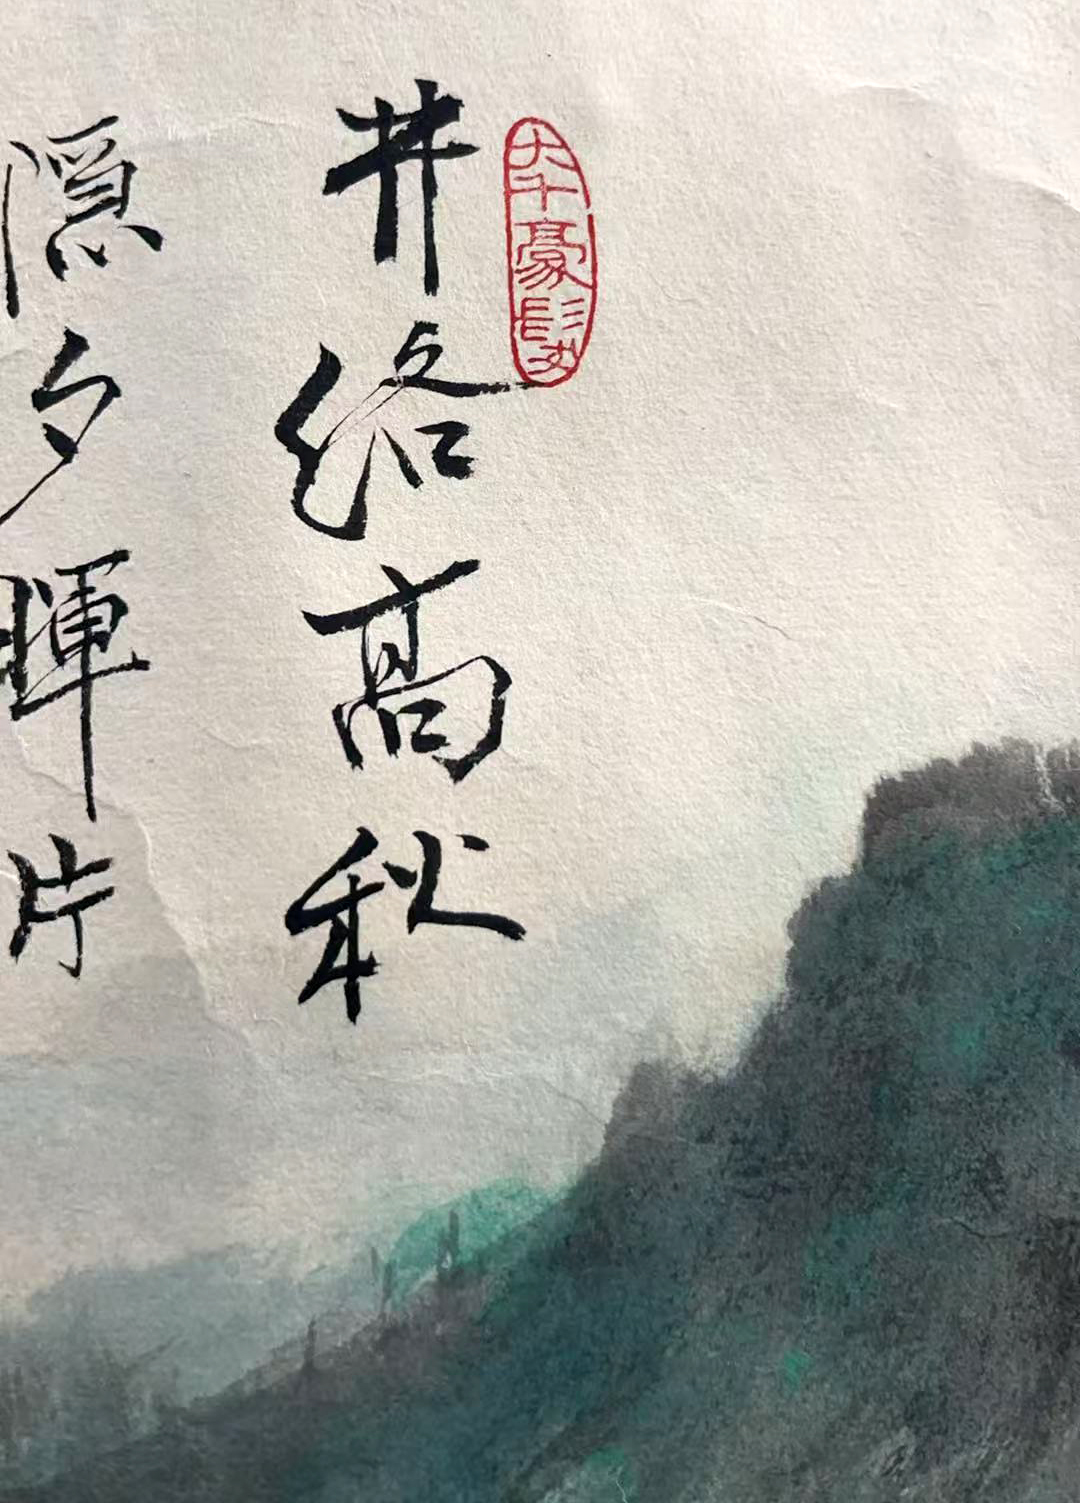 大千豪髮
井络高秋
隱夕暉片